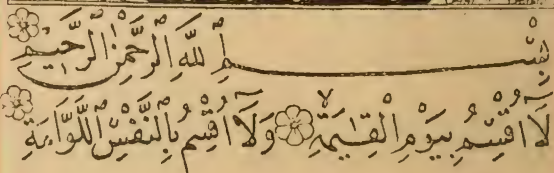 بِسْمِ اللَّهِ الرَّحْمٰنِ الرَّحِيمِ
لَا أُقْسِمُ بِيَوْمِ الْقِيٰمَةِ وَلَا أُقْسِمُ بِالنَّفْسِ اللَّوَّامَةِ